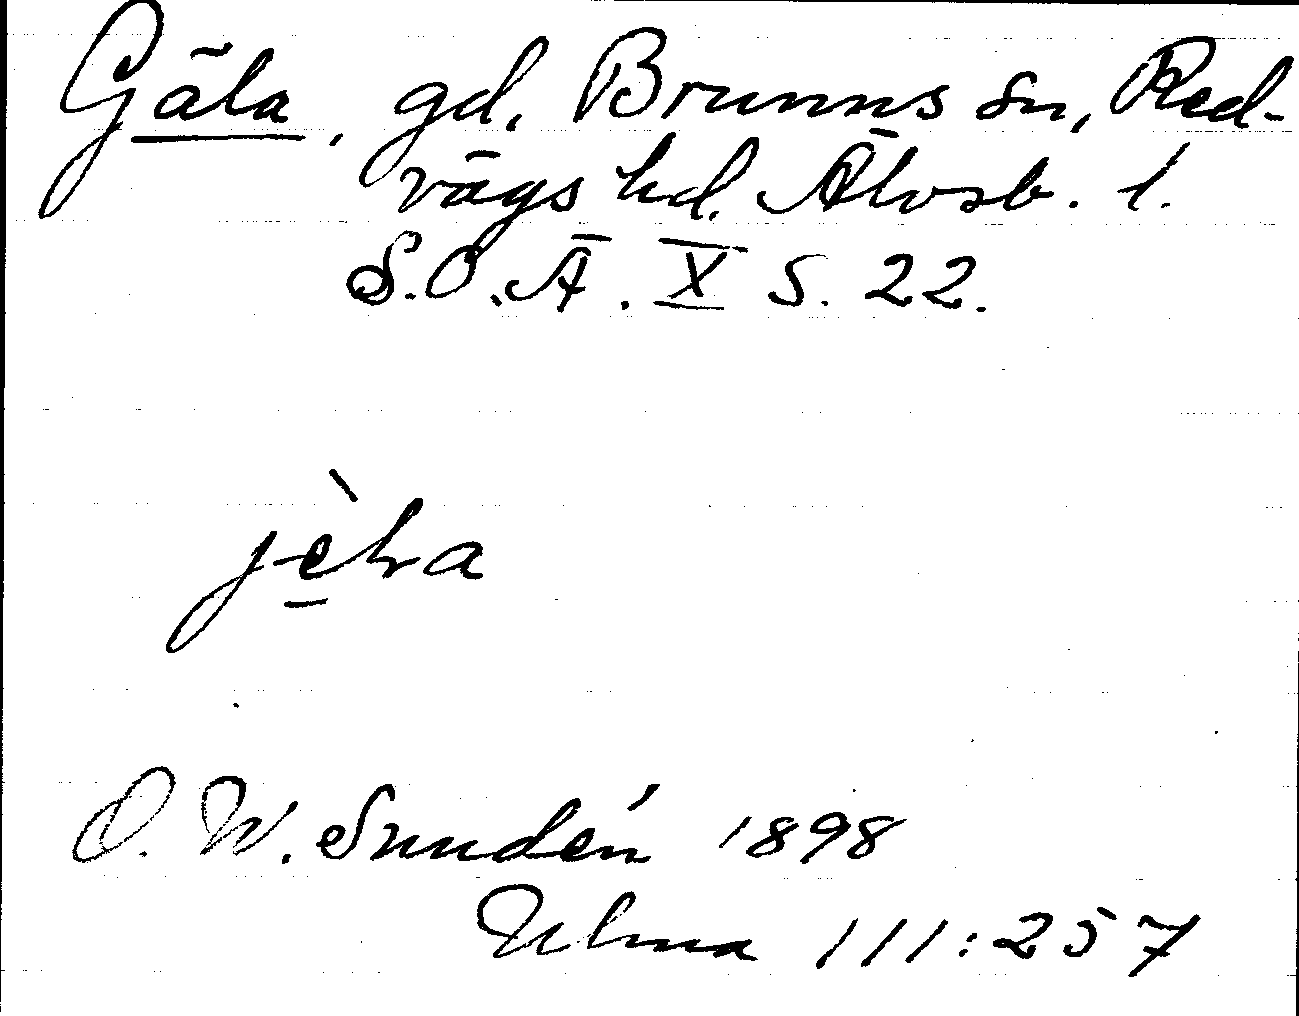 Gäla, gd, Brunns sn, Red-
vägs hd. Älvsb. l.
S.O.Ä. X S. 22.
ję̀la
O. W. Sundén 1898
Ulma 111:257